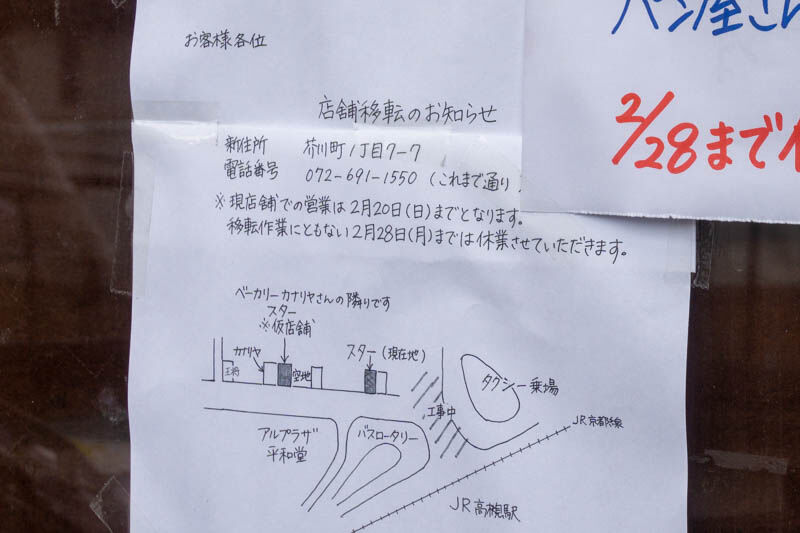 お客様各位
パン屋さん
2/28まで
店舗移転のお知らせ
新住所 芥川町1丁目7-7
電話番号 072-691-1550 (これまで通り)
※現店舗での営業は2月20日(日)までとなります。
移転作業にともない2月28日(月)までは休業させていただきます。
ベーカリーカナリヤさんの隣りです
スター
※仮店舗
カナリヤ
スター(現在地)
王将
空地
タクシー乗場
工事中
JR京都線
アルプラザ
平和堂
バスロータリー
JR高槻駅